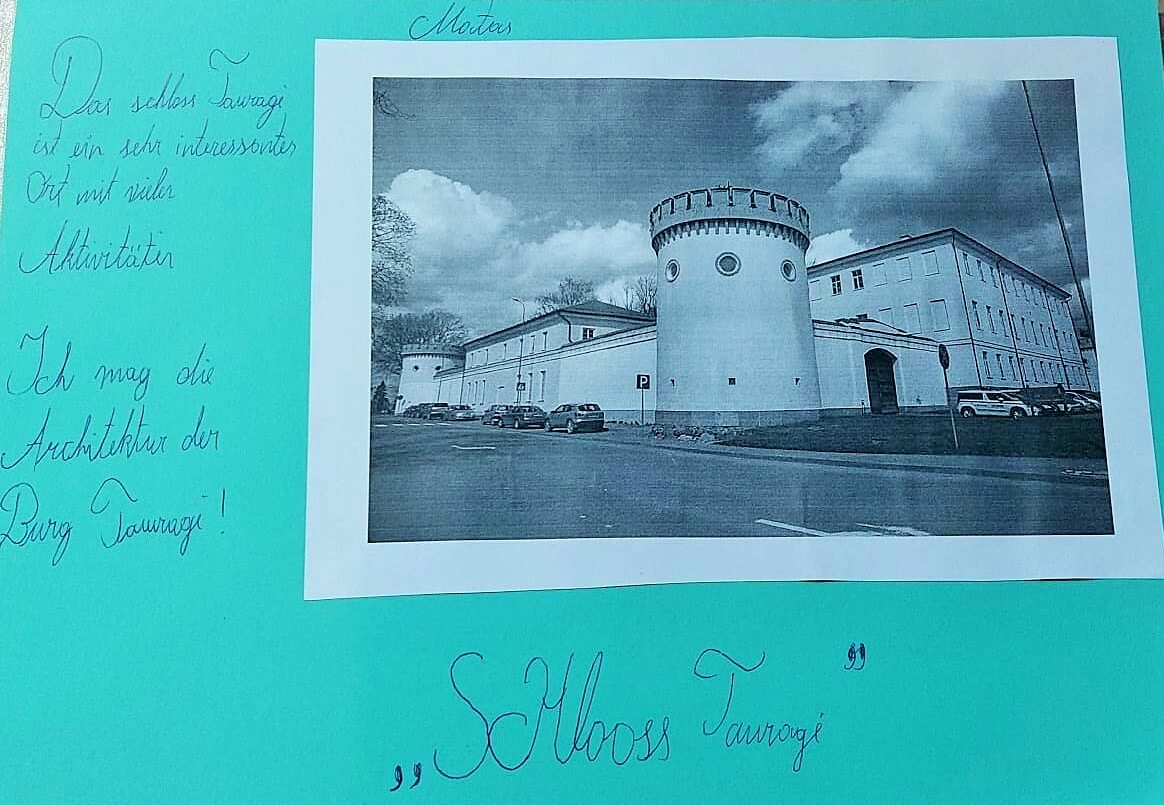 Matas
Das schloss Tauragi
ist ein sehr interessantes
Ort mit vielen
Aktivitäten
Ich mag die
Architektur der
Burg Tauragi!
P
„SCHlooss Tauragi”